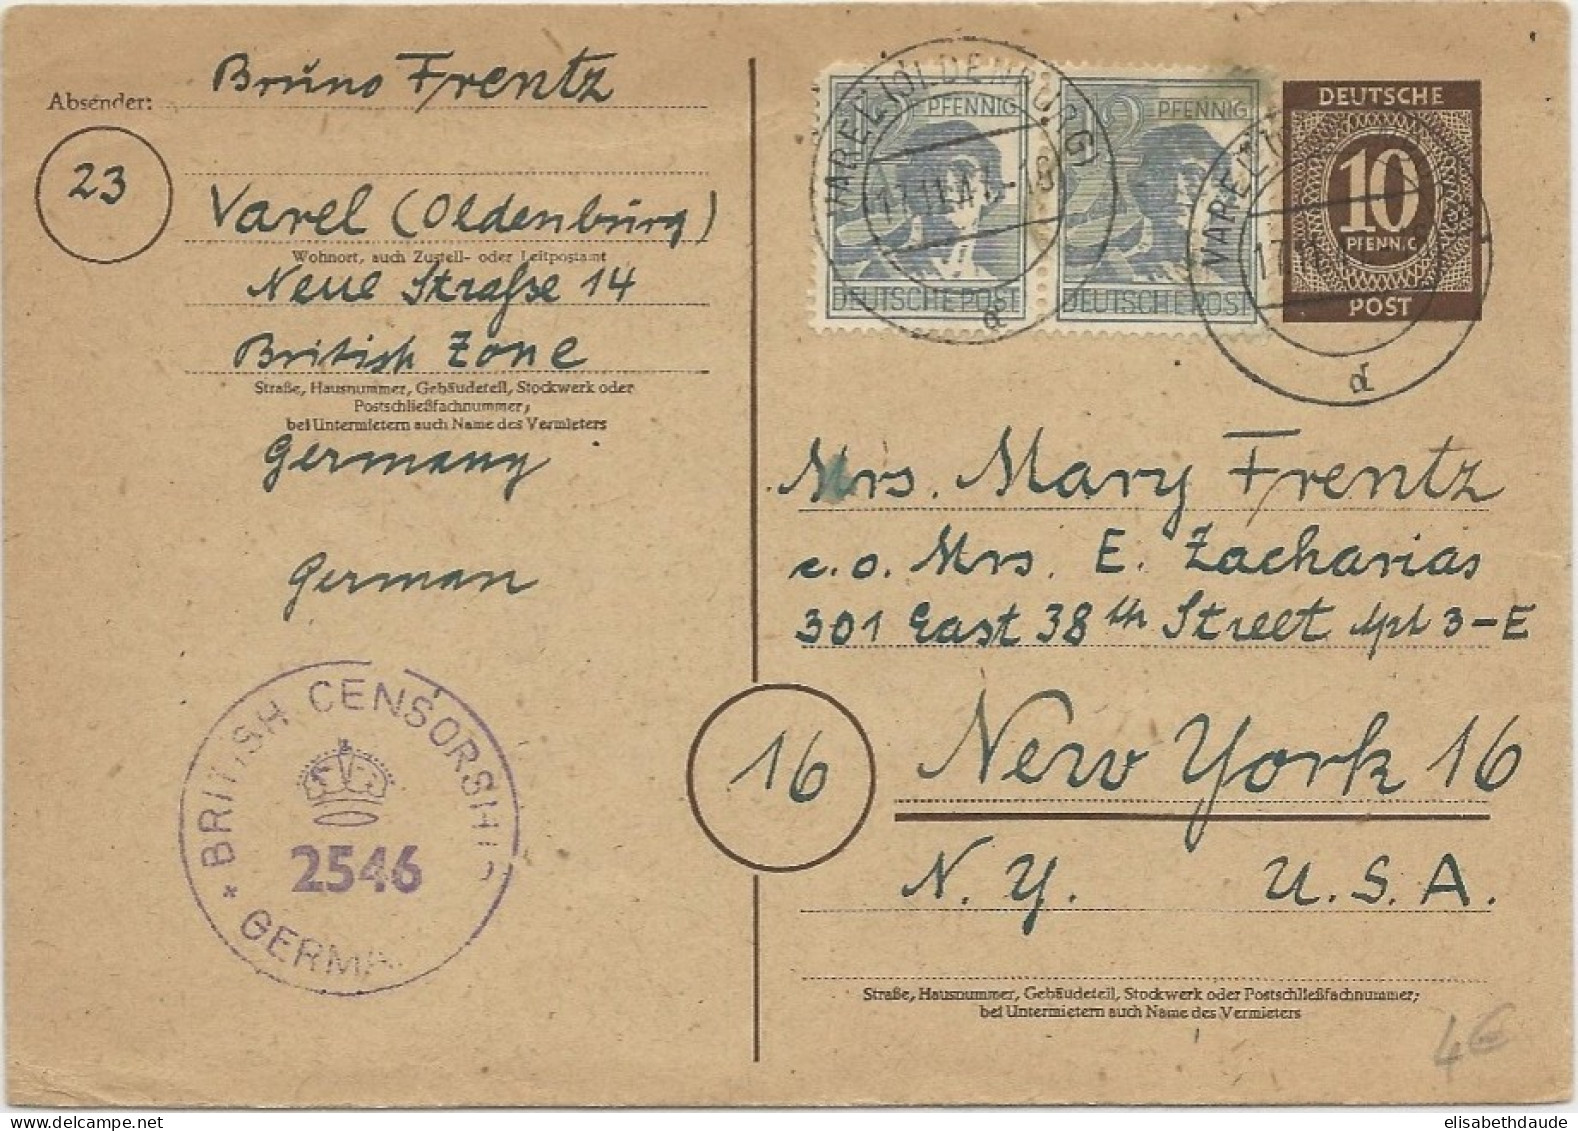 Absender: Bruno Frentz
23
Varel (Oldenburg)
Wohnort, auch Zustell- oder Leitpostamt
Neue Straße 14
British Zone
Straße, Hausnummer, Gebäudeteil, Stockwerk oder
Postschließfachnummer;
bei Untermietern auch Name des Vermieters
Germany
German
BRITISH CENSORSHIP
2546
* GERMA
12 PFENNIG
DEUTSCHE POST
12 PFENNIG
DEUTSCHE POST
VAREL (OLDENBURG)
17.11.47.-18
d
DEUTSCHE
10
PFENNIG
POST
VAREL (
17
d
Mrs. Mary Frentz
c.o. Mrs. E. Zacharias
301 East 38th Street Apt 3-E
16
New York 16
N.Y. U.S.A.
Straße, Hausnummer, Gebäudeteil, Stockwerk oder Postschließfachnummer;
bei Untermietern auch Name des Vermieters
4€
elisabethdaude